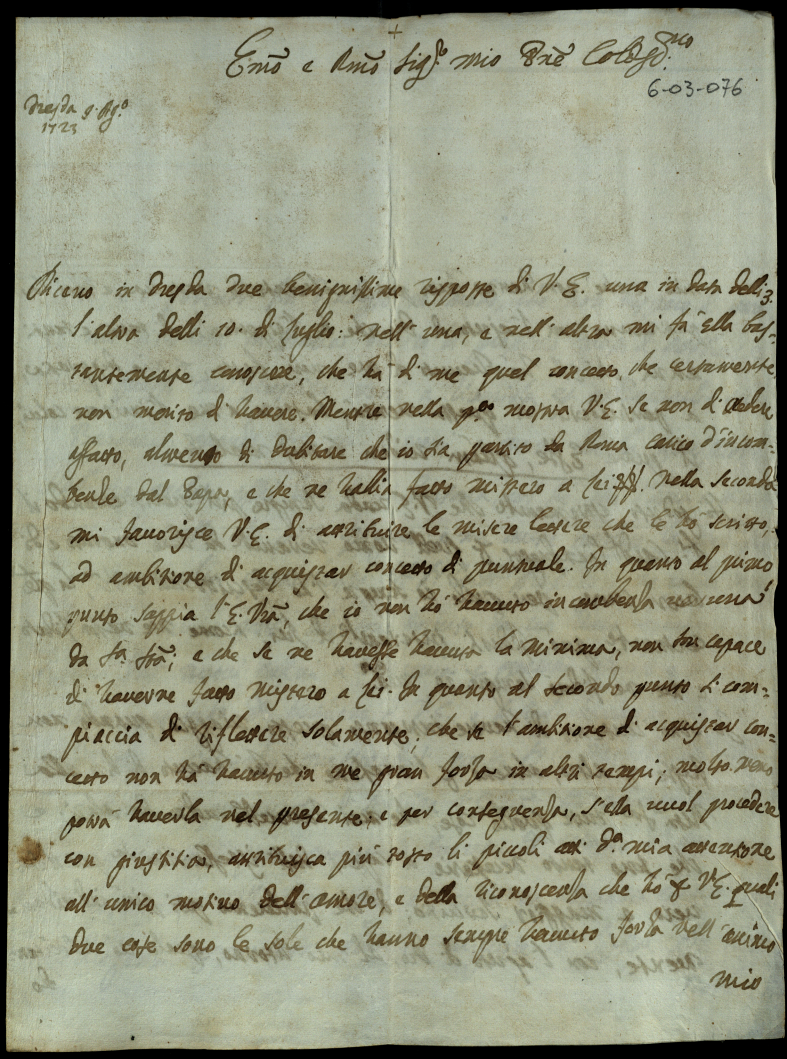 +
Emō e Rmō Sig.e mio Prnē Colēdmo
6-03-076
Dresda 9. Ag.o
1723
Ricevo in Dresda due benignissime risposte di V. E. una in data delli 3.
l'altra delli 10. di luglio: nell'una, e nell'altra mi fà Ella bas=
tantemente conoscere, che hà di me quel concetto, che certamente
non merito d'havere. Mentre nella p.a mostra V. E. se non di credere
affatto, almeno di dubitare che io sia partito da Roma carico d'incom=
benze dal Papa, e che ne habbia fatto mistero a Lei. Nella seconda
mi favorisce V. E. di attribuire le misere lettere che le hò scritto,
ad ambitione di acquistar concetto di puntuale. In quanto al primo
punto sappia l'E. Vrā, che io non hò havuto incombenza nessuna
da Sa. Stā, e che se ne havesse havuta la minima, non son capace
di haverne fatto mistero a Lei. In quanto al secondo punto si com=
piaccia di riflettere solamente, che se l'ambitione di acquistar con=
cetto non hà havuto in me gran forza in altri tempi, molto meno
potrà haverla nel presente, e per conseguenza, s'ella vuol procedere
con giustitia, attribuisca più tosto li piccoli atti d.a mia attentione
all'unico motivo dell'amore, e della riconoscenza che hò p V. E. quali
due cose sono le sole che hanno sempre havuto forza nell'animo
mio